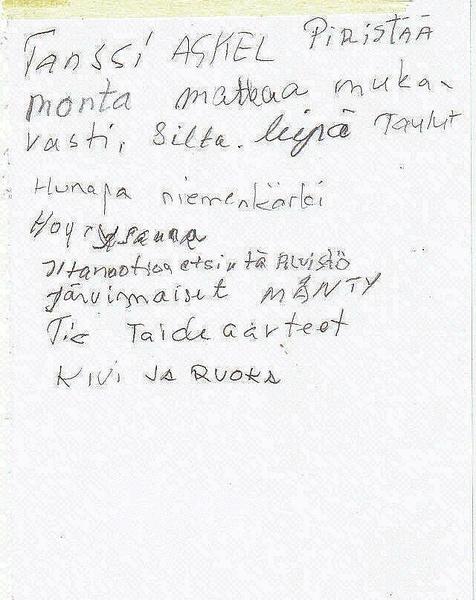 Tanssi ASKEL PiRistÄÄ
monta matkaa muka-
vasti, Silta. leipä Taulut
Hunapa niemenkärki
Höyrysauna
etsintä
Järvimaiset MÄNTY
Tie Taideaarteet
Kivi JA RUOKA